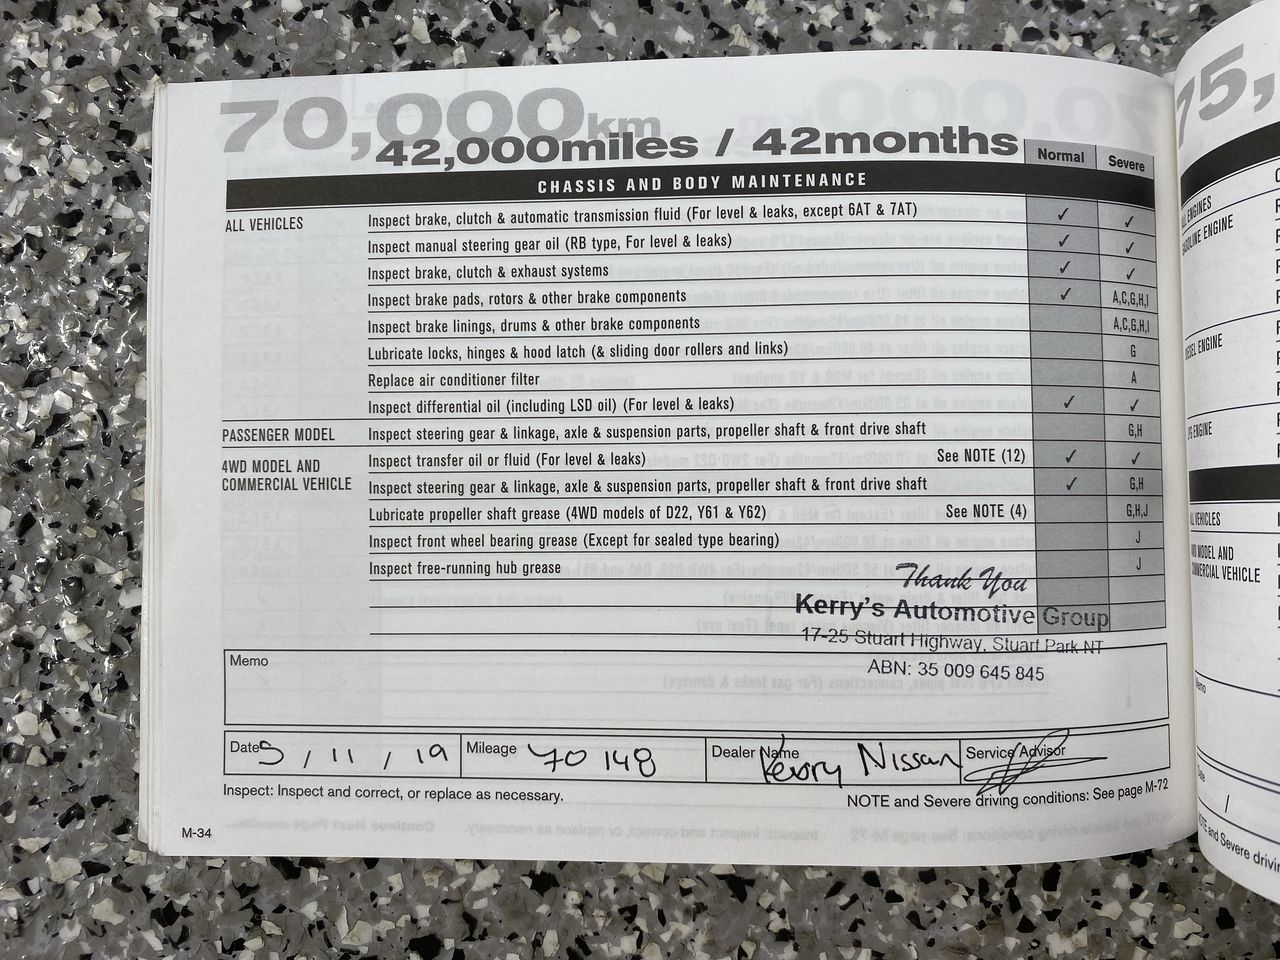 70,000km
42,000miles / 42months
Normal Severe
CHASSIS AND BODY MAINTENANCE
ALL VEHICLES Inspect brake, clutch & automatic transmission fluid (For level & leaks, except 6AT & 7AT) ✓ ✓
Inspect manual steering gear oil (RB type, For level & leaks) ✓ ✓
Inspect brake, clutch & exhaust systems ✓ ✓
Inspect brake pads, rotors & other brake components ✓ A,C,G,H,I
Inspect brake linings, drums & other brake components A,C,G,H,I
Lubricate locks, hinges & hood latch (& sliding door rollers and links) G
Replace air conditioner filter A
Inspect differential oil (including LSD oil) (For level & leaks) ✓ ✓
PASSENGER MODEL Inspect steering gear & linkage, axle & suspension parts, propeller shaft & front drive shaft G,H
4WD MODEL AND Inspect transfer oil or fluid (For level & leaks) See NOTE (12) ✓ ✓
COMMERCIAL VEHICLE Inspect steering gear & linkage, axle & suspension parts, propeller shaft & front drive shaft ✓ G,H
Lubricate propeller shaft grease (4WD models of D22, Y61 & Y62) See NOTE (4) G,H,J
Inspect front wheel bearing grease (Except for sealed type bearing) J
Inspect free-running hub grease J
Thank You
Kerry's Automotive Group
17-25 Stuart Highway, Stuart Park NT
ABN: 35 009 645 845
Memo
Date 5 / 11 / 19 Mileage 70 148 Dealer Name Kerry Nissan Service Advisor
Inspect: Inspect and correct, or replace as necessary.
NOTE and Severe driving conditions: See page M-72
M-34
75,
ENGINES
ENGINE
ENGINE
ENGINE
VEHICLES
MODEL AND
COMMERCIAL VEHICLE
Memo
/
NOTE and Severe